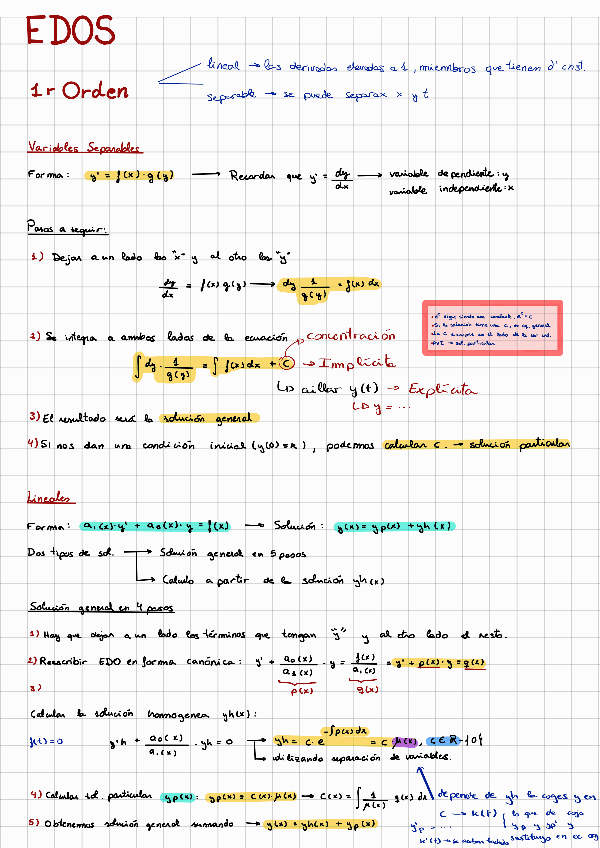 EDOS
1r Orden
lineal → las derivadas elevadas a 1, miembros que tienen d' cnst.
separable → se puede separar x y t
Variables Separables
Forma: y' = f(x)·g(y) → Recordar que y' = dy/dx → variable dependiente: y
variable independiente: x
Pasos a seguir:
1) Dejar a un lado las "x" y al otro las "y"
dy/dx = f(x) g(y) → dy 1/g(y) = f(x) dx
2) Se integra a ambos lados de la ecuación
concentración
∫ dy · 1/g(y) = ∫ f(x) dx + C → Implícita
↳ aillar y(t) → Explícita
↳ y = ...
3) El resultado será la solución general
4) Si nos dan una condición inicial (y(0) = k), podemos calcular C. → solución particular
Lineales
Forma: a₁(x)·y' + a₀(x)·y = f(x) → Solución: y(x) = yp(x) + yh(x)
Dos tipos de sol. → Solución general en 5 pasos
→ Calculo a partir de la solución yh(x)
Solución general en 4 pasos
1) Hay que dejar a un lado los términos que tengan "y" y al otro lado el resto.
2) Reescribir EDO en forma canónica: y' + a₀(x)/a₁(x) · y = f(x)/a₁(x) = y' + p(x)·y = g(x)
p(x) g(x)
3)
Calcular la solución homogenea yh(x):
f(t)=0 y'h + a₀(x)/a₁(x) · yh = 0 → yh = C·e^(-∫p(x)dx) = C·μ(x), C ∈ ℝ-{0}
→ utilizando separación de variables.
4) Calcular sol. particular yp(x): yp(x) = C(x)·μ(x) → C(x) = ∫ 1/μ(x) g(x) dx
depende de yh la coges y en
C → k(t)
lo que de cojo
yp y yp' y
y'p = ...
sustituyo en ec og
5) Obtenemos solución general sumando → y(x) = yh(x) + yp(x)